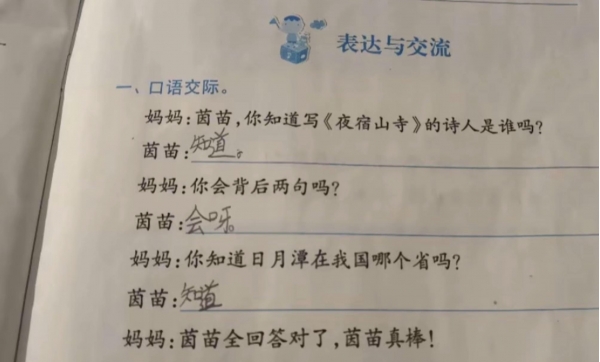 表达与交流
一、口语交际。
妈妈:茵苗,你知道写《夜宿山寺》的诗人是谁吗?
茵苗:知道。
妈妈:你会背后两句吗?
茵苗:会呀。
妈妈:你知道日月潭在我国哪个省吗?
茵苗:知道
妈妈:茵苗全回答对了,茵苗真棒!